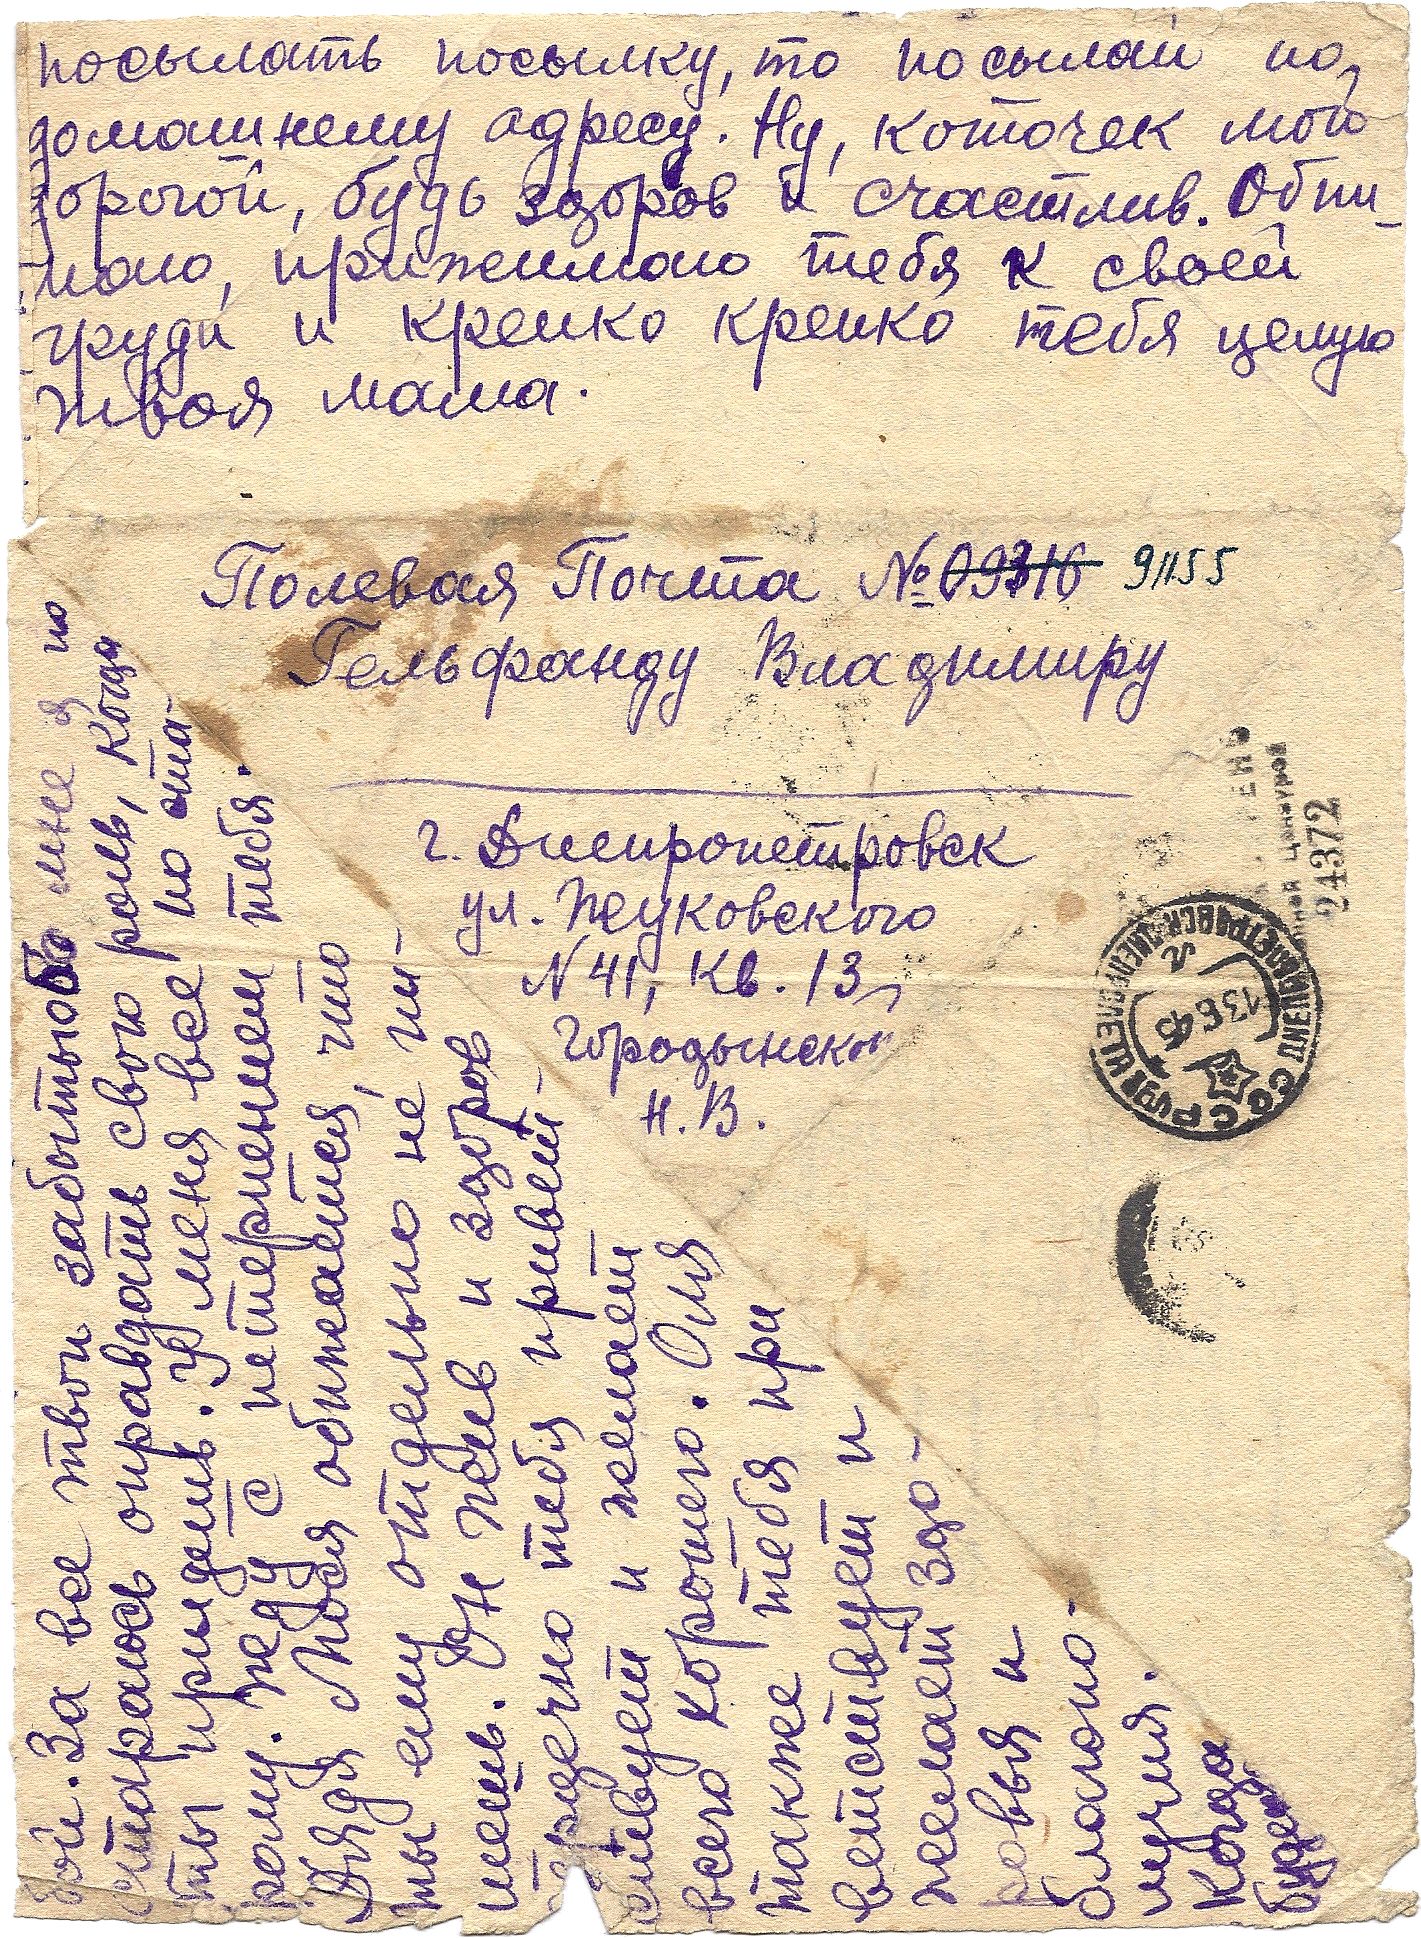 посылать посылку, то посылай по
домашнему адресу. Ну, коточек мой
дорогой, будь здоров и счастлив. Обни-
маю, прижимаю тебя к своей
груди и крепко крепко тебя целую
твоя мама.
Полевая Почта № 09316 91155
Гельфанду Владимиру
г. Днепропетровск
ул. Жуковского
N 41, кв. 13,
Городынской
Н. В.
24372
СССР
13 6 45
бой. За все твои заботы обо мне я по
стараюсь оправдать свою роль, когда
ты придешь. У меня все по ста-
рому. Жду с нетерпением тебя.
Дядя Мося обижается, что
ты ему отдельно не пи-
шешь. Он жив и здоров
сердечно тебя привет-
ствует и желает
всего хорошего. Оля
также тебя при
ветствует и
желает здо-
ровья и
благопо-
лучия.
Когда
будешь